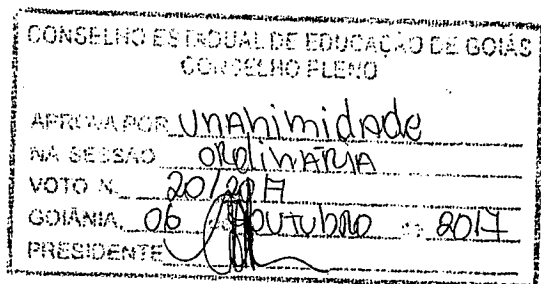 CONSELHO ESTADUAL DE EDUCAÇÃO DE GOIÁS
CONSELHO PLENO
APROVA POR UNAhimidADe
NA SESSÃO ORDINARIA
VOTO N. 20/2017
GOIÂNIA, 06 OUTUBRO 2017
PRESIDENTE